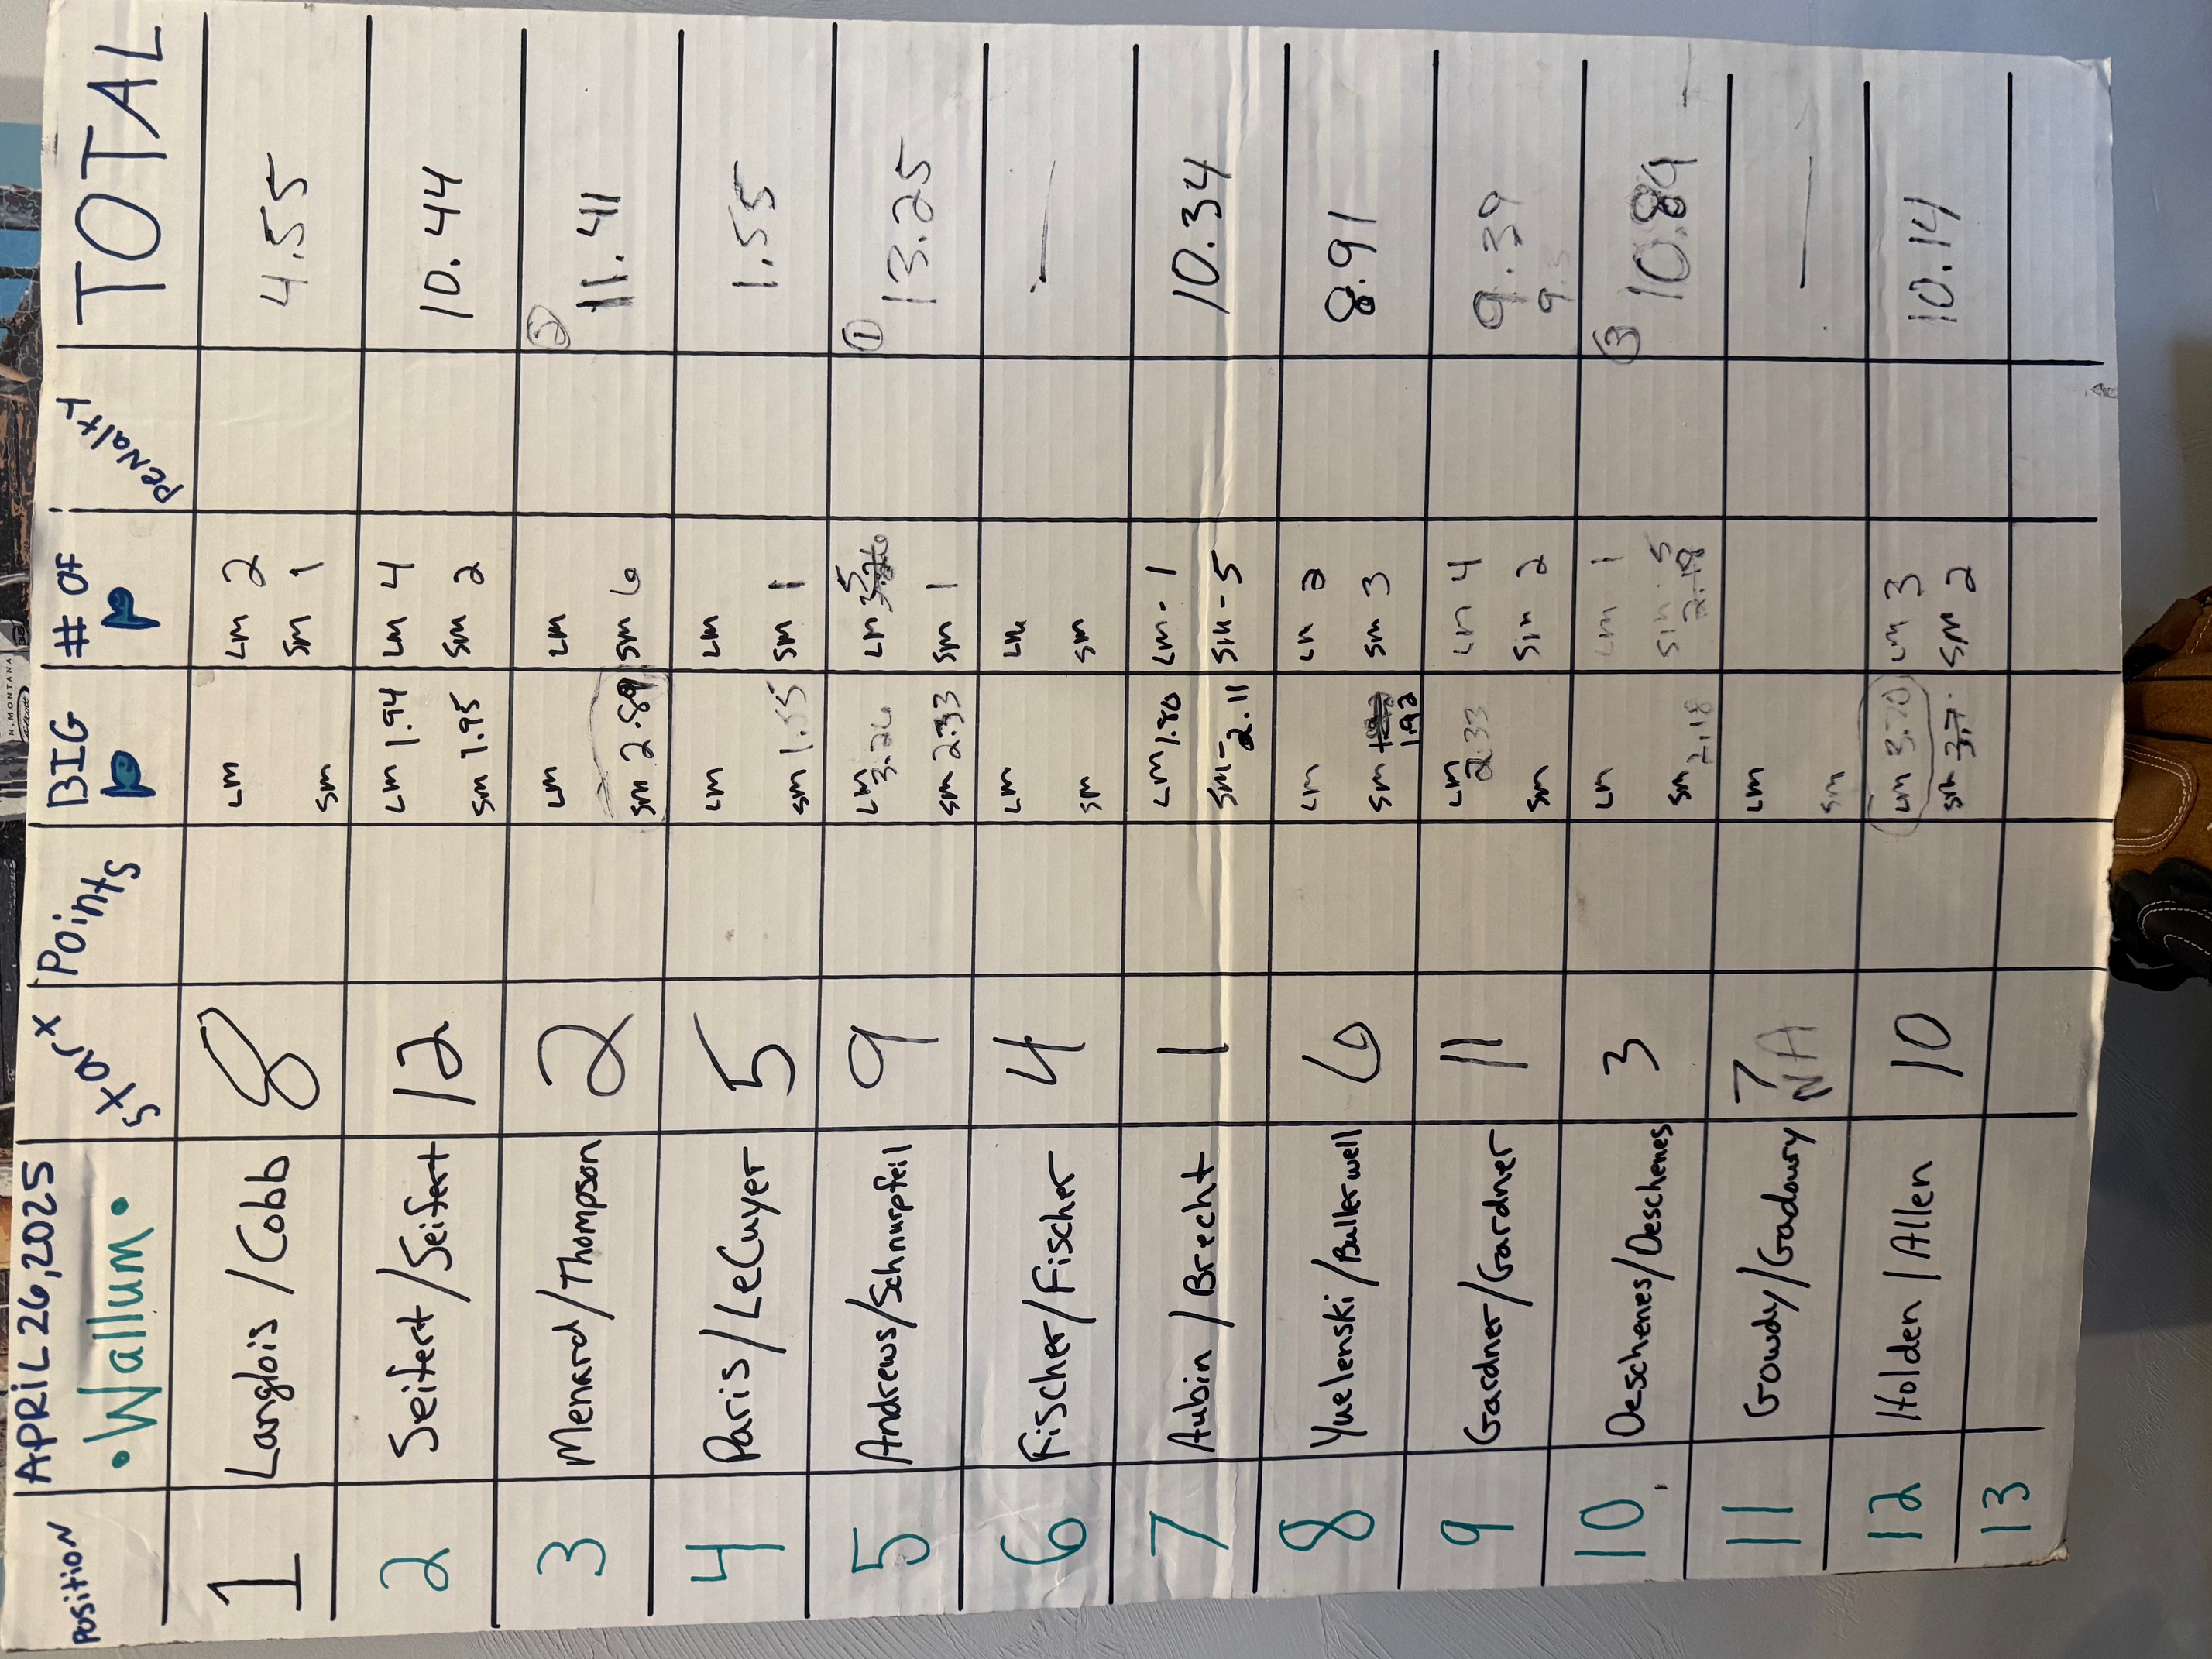 Position APRIL 26, 2025 Points BIG # OF Penalty TOTAL
•Wallum•
1 Langlois / Cobb 8 LM LM 2 4.55
SM SM 1
2 Seifert / Seifert 12 LM 1.94 LM 4 10.44
SM 1.95 SM 2
3 Menard / Thompson 2 LM LM ② 11.41
SM 2.89 SM 6
4 Paris / LeCuyer 5 LM LM 1.55
SM 1.55 SM 1
5 Andrews / Schnurpfeil 9 LM 3.26 LM 5 ① 13.25
SM 2.33 SM 1
6 Fischer / Fischer 4 LM LM —
SM SM
7 Aubin / Brecht 1 LM 1.80 LM - 1 10.34
SM - 2.11 SM - 5
8 Yuelenski / Bullerwell 6 LM LM 2 8.91
SM 1.92 SM 3
9 Gardner / Gardner 11 LM 2.33 LM 4 9.39
SM SM 2 9.3
10 Deschenes / Deschenes 3 LM LM 1 ③ 10.84
SM 2.18 SM 5
2.18
11 Gowdy / Gadoury 7 LM —
NA SM
12 Holden / Allen 10 LM 3.70 LM 3 10.14
SM 3.7 SM 2
13